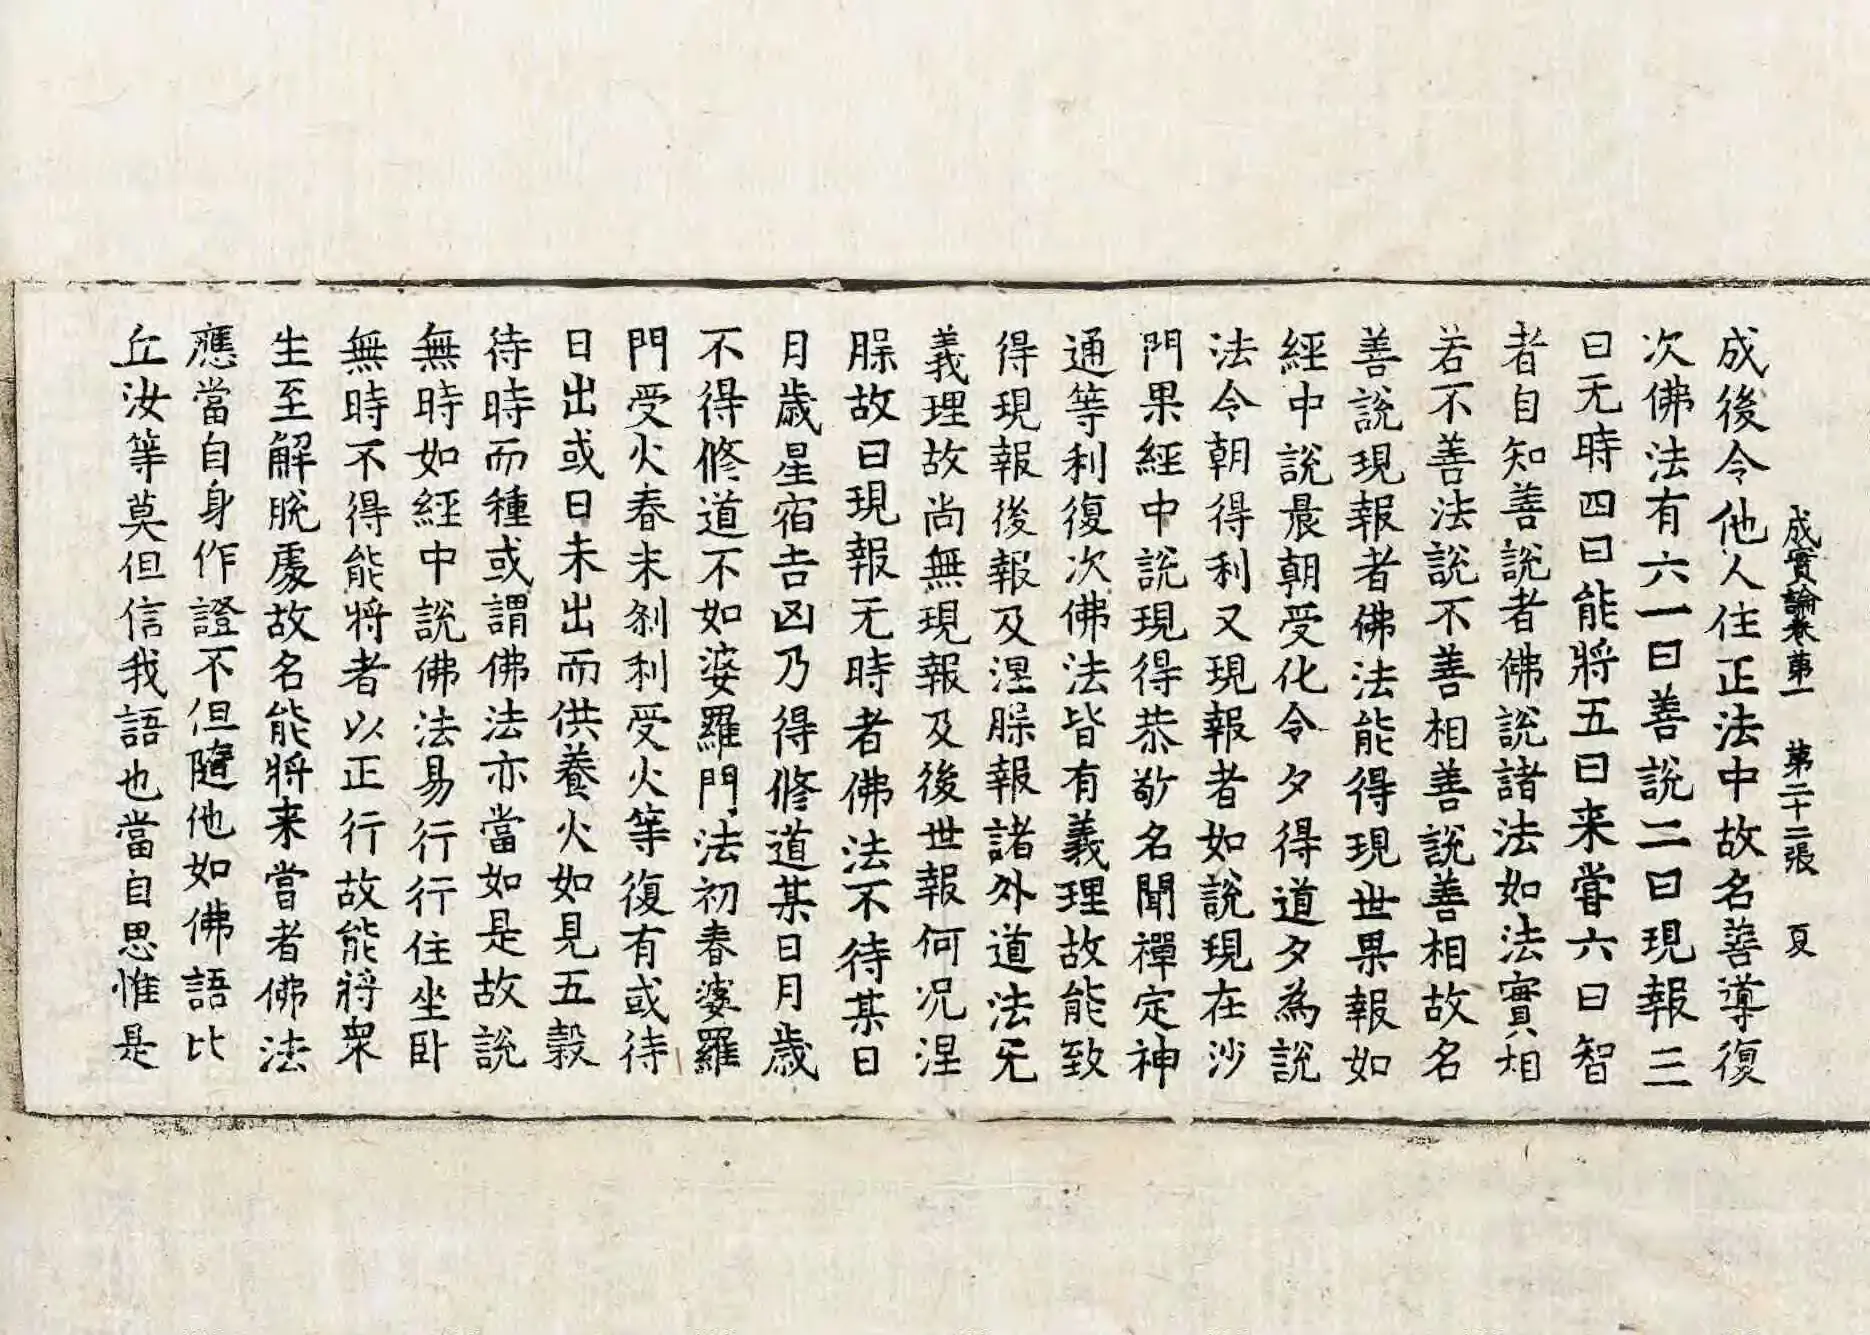 成實論卷第一 第二十二張 夏
成後令他人住正法中故名善導復
次佛法有六一曰善說二曰現報三
曰无時四曰能將五曰来甞六曰智
者自知善說者佛說諸法如法實相
若不善法說不善相善說善相故名
善說現報者佛法能得現世果報如
經中說晨朝受化令夕得道夕為說
法令朝得利又現報者如說現在沙
門果經中說現得恭敬名聞禪定神
通等利復次佛法皆有義理故能致
得現報後報及涅脲報諸外道法无
義理故尚無現報及後世報何況涅
脲故曰現報无時者佛法不待某日
月歲星宿吉凶乃得修道某日月歲
不得修道不如婆羅門法初春婆羅
門受火春末刹利受火等復有或待
日出或日未出而供養火如見五穀
待時而種或謂佛法亦當如是故說
無時如經中說佛法易行行住坐卧
無時不得能將者以正行故能將衆
生至解脫處故名能將来嘗者佛法
應當自身作證不但隨他如佛語比
丘汝等莫但信我語也當自思惟是